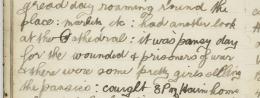 great day roaming round the
place: market etc: had another look
at the Cathedral: it was pansy day
for the wounded & prisoners of war
& there were some pretty girls selling
the pansies: caught 8 P.m. train home